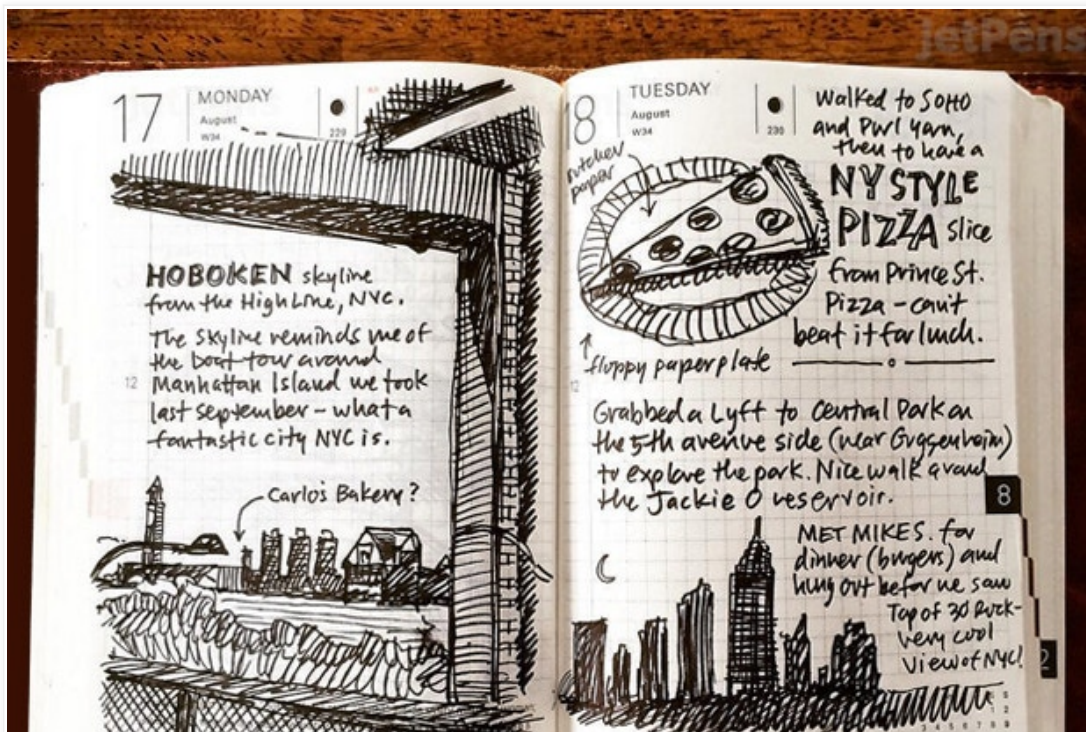 jetPens
17
MONDAY
August
W34
229
HOBOKEN skyline
from the High Line, NYC.
The skyline reminds me of
the boat tour around
12
Manhattan Island we took
last september – what a
fantastic city NYC is.
Carlo's Bakery?
8
TUESDAY
August
W34
230
Walked to SOHO
and Purl Yarn,
then to have a
NY STYLE
PIZZA slice
from Prince St.
Pizza – can't
beat it for lunch.
butcher
paper
floppy paper plate
12
Grabbed a Lyft to Central Park on
the 5th avenue side (near Guggenheim)
to explore the park. Nice walk around
the Jackie O reservoir.
8
MET MIKE S. for
dinner (burgers) and
hung out before we saw
Top of 30 Rock –
very cool
view of NYC!
2